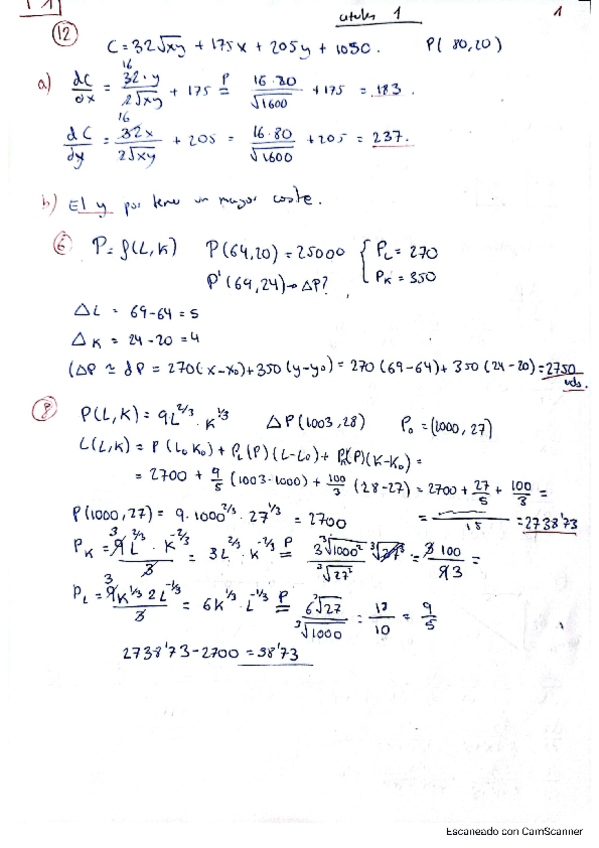 1
12 C = 32√xy + 175x + 205y + 1050. P(80,20)
a) dC/dx = 32·y/2√xy + 175 =ᴾ 16·80/√1600 + 175 = 183.
dC/dy = 32x/2√xy + 205 = 16·80/√1600 + 205 = 237.
b) El y por tener un mayor coste.
6 P = f(L,K) P(64,20) = 25000 { PL = 270
P'(69,24) → ΔP? PK = 350
ΔL = 69-64 = 5
ΔK = 24-20 = 4
(ΔP ≃ dP = 270(x-x₀)+350(y-y₀) = 270(69-64)+350(24-20) = 2750
uds.
8 P(L,K) = 9L^2/3 · K^1/3 ΔP(1003,28) P₀ = (1000,27)
L(L,K) = P(L₀K₀) + PL(P)(L-L₀) + PK(P)(K-K₀) =
= 2700 + 9/5 (1003-1000) + 100/3 (28-27) = 2700 + 27/5 + 100/3 =
P(1000,27) = 9·1000^2/3 · 27^1/3 = 2700 = /15 = 2738'73
PK = 9L^2/3 K^-2/3 / 3 = 3L^2/3 · K^-2/3 =ᴾ 3∛1000² / ∛27² = 3 100 / 93 =
PL = 9K^1/3 2L^-1/3 / 3 = 6K^1/3 · L^-1/3 =ᴾ 6∛27 / ∛1000 = 18/10 = 9/5
2738'73 - 2700 = 38'73
Escaneado con CamScanner